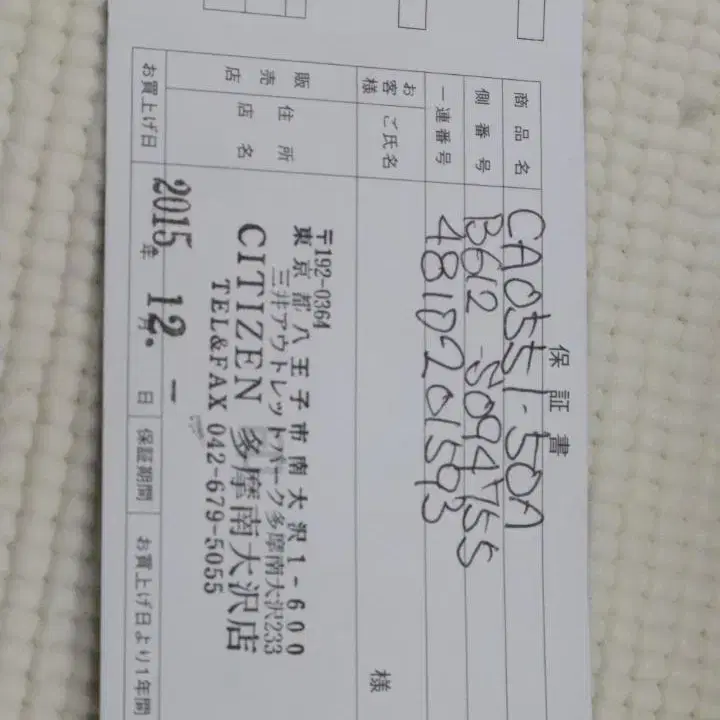 保証書
商品名 CA0551-50A
側番号 B612-S094755
一連番号 4810201593
お客様 ご氏名 様
販売店 住所 店名
〒192-0364
東京都八王子市南大沢1-600
三井アウトレットパーク多摩南大沢233
CITIZEN 多摩南大沢店
TEL&FAX 042-679-5055
お買上げ日 2015年 12月 日 保証期間 お買上げ日より1年間